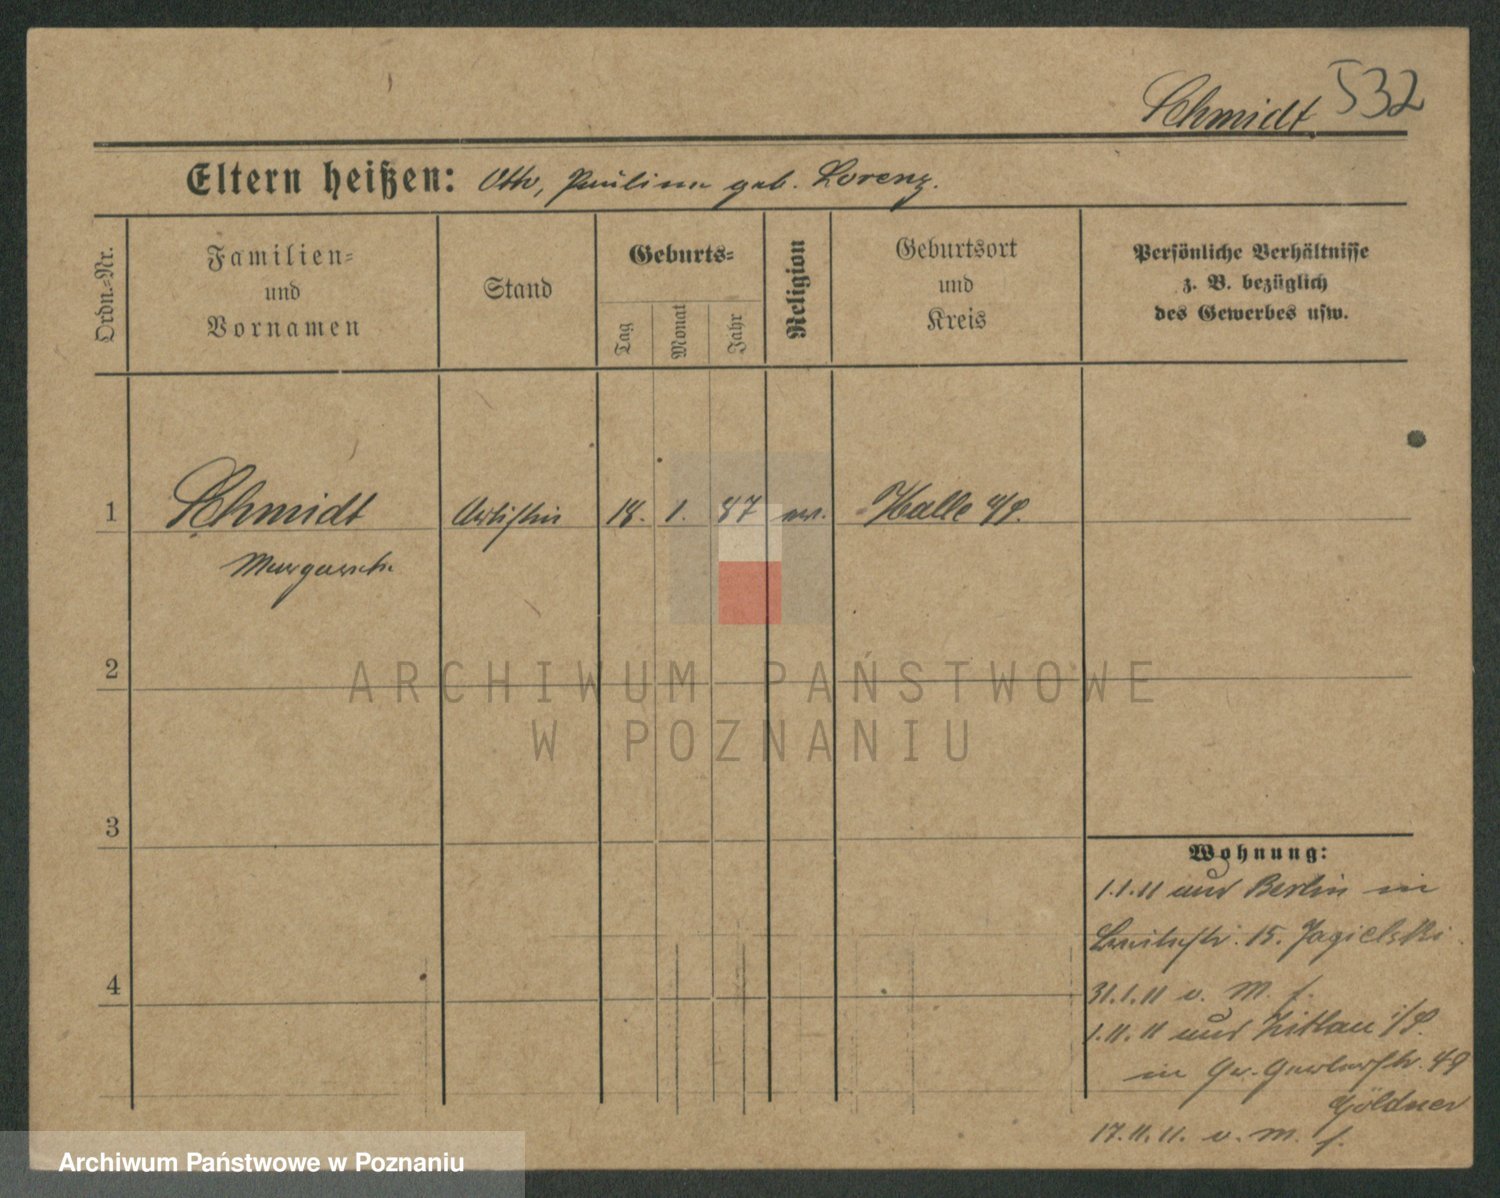 Schmidt 532
Eltern heißen: Otto, Pauline geb. Lorenz.
Ordn.-Nr.
Familien-
und
Vornamen
Stand
Geburts-
Tag
Monat
Jahr
Religion
Geburtsort
und
Kreis
Persönliche Verhältnisse
z. B. bezüglich
des Gewerbes usw.
1 Schmidt Artistin 18. 1. 87 ev. Halle a/S.
Margarethe
2
3
4
Wohnung:
1.1.11 aus Berlin in
15. Jagielski.
31.1.11 v. M. f.
1.11.11 aus Zittau i/S.
in Gr. Gerberstr. 49
Göldner
17.11.11. v. M. f.
ARCHIWUM PAŃSTWOWE
W POZNANIU
Archiwum Państwowe w Poznaniu